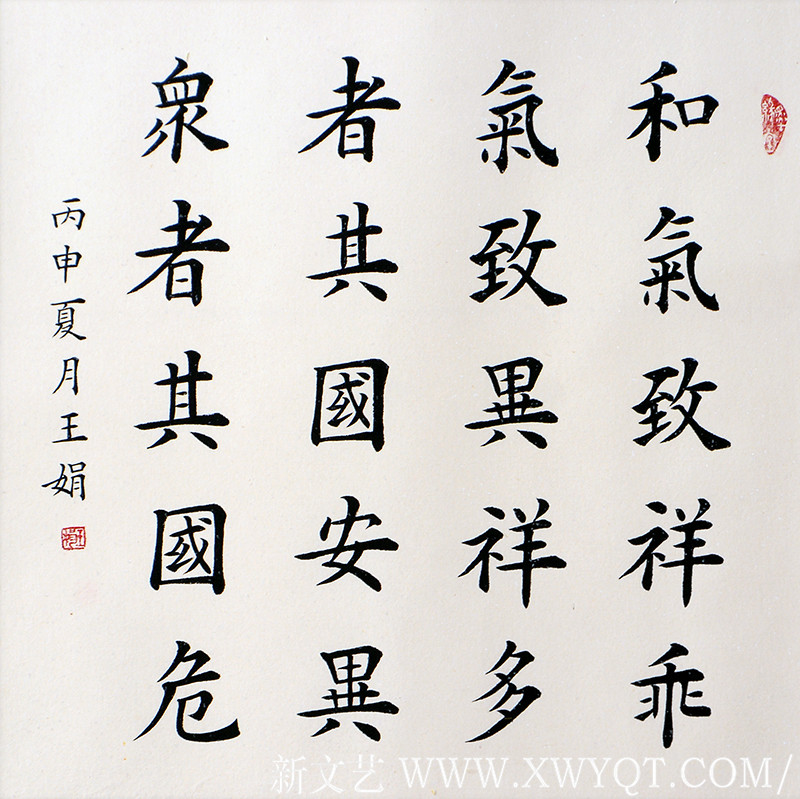 和氣致祥乖
氣致異祥多
者其國安異
衆者其國危
丙申夏月王娟
新文艺 WWW.XWYQT.COM/